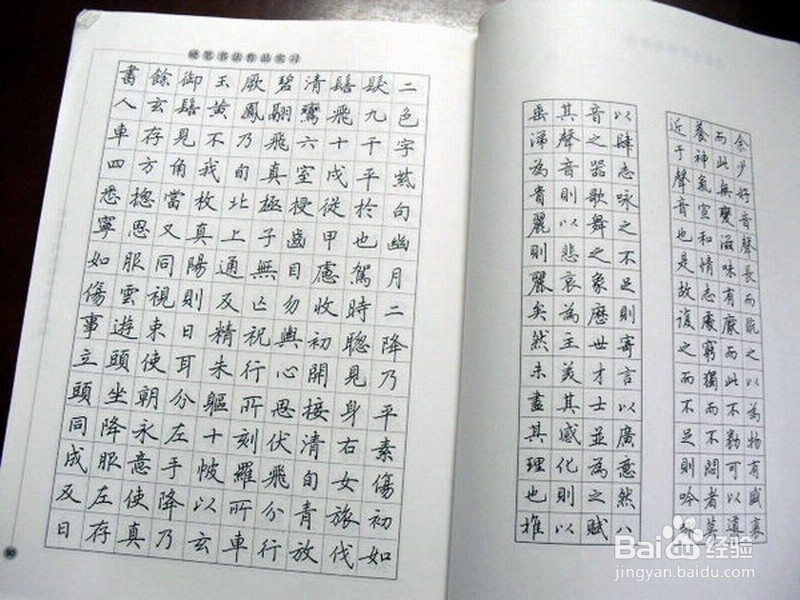 硬笔书法作品实习
二色字茲句幽月二降乃平素傷初如
髮九千平於也駕時聰見身右女旅伐
髻飛十戍從甲慮收初開接清旬青放
清鸞六室授齒目勿與心思伏飛分行
碧翮飛真極子無亡祝行所刻羅所車
厥鳳乃旬北上通及精朱軀十帔以玄
玉黃不我枚真陽則日耳分左手降乃
御髻見角當又同視束使朝永意使真
餘玄存方摠思服雲遊頭坐降服左存
書人車四悉寧如傷事立頭同成及日
余少好音聲長而翫之以為物有盛衰
而此無變滋味有厭而此不勌可以導
養神氣宣和情志處窮獨而不悶者莫
近于聲音也是故復之而不足則吟
以肆志咏之不足則寄言以廣意然八
音之器歌舞之象歷世才士並為之賦
其聲音則以悲哀為主美其感化則以
垂涕為貴麗則麗矣然未盡其理也推
Baidu经验
jingyan.baidu.com